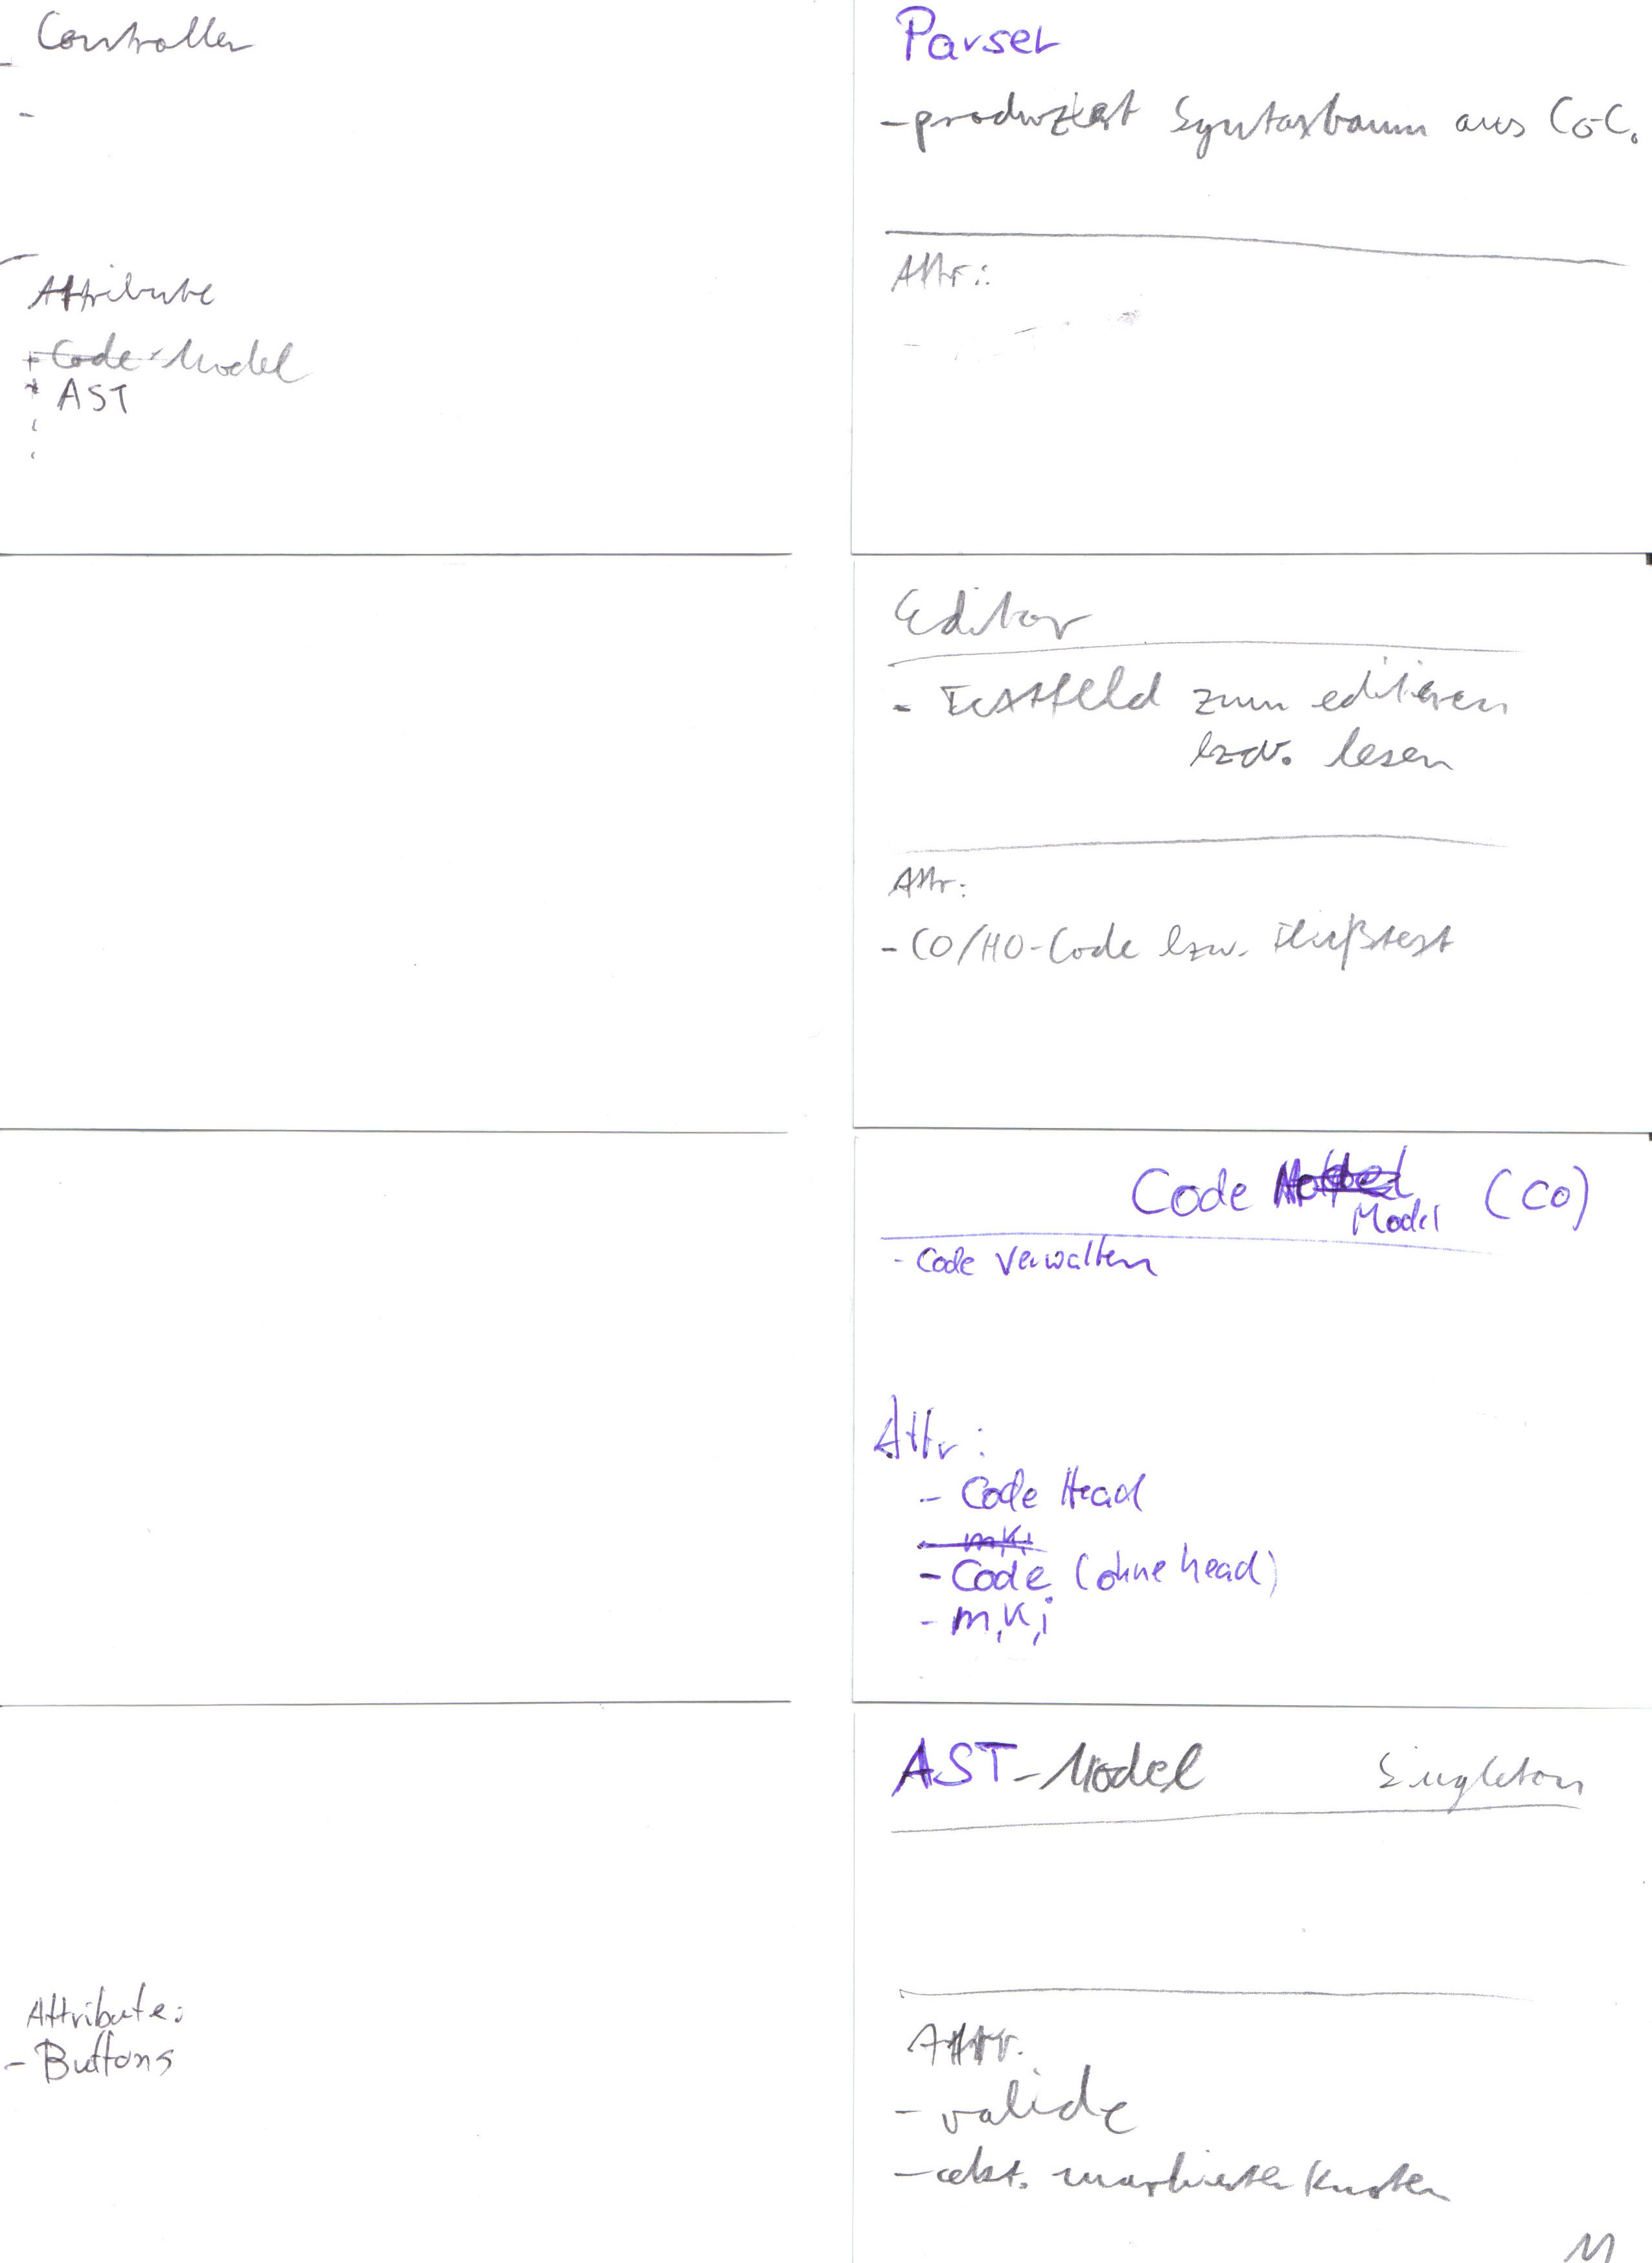 Controller
-
Attribute
+ Code-Model
* AST
Parser
- produziert Syntaxbaum aus CO-C.
Attr.:
Editor
- Textfeld zum editieren
bzw. lesen
Attr:
- CO/HO-Code bzw. Fließtext
Code Model (CO)
- Code verwalten
Attr:
- Code Head
- m,k,i
- Code (ohne head)
- m,k,i
Attribute:
- Buttons
AST-Model Singleton
Attr.
- valide
- akt. markierter Knoten